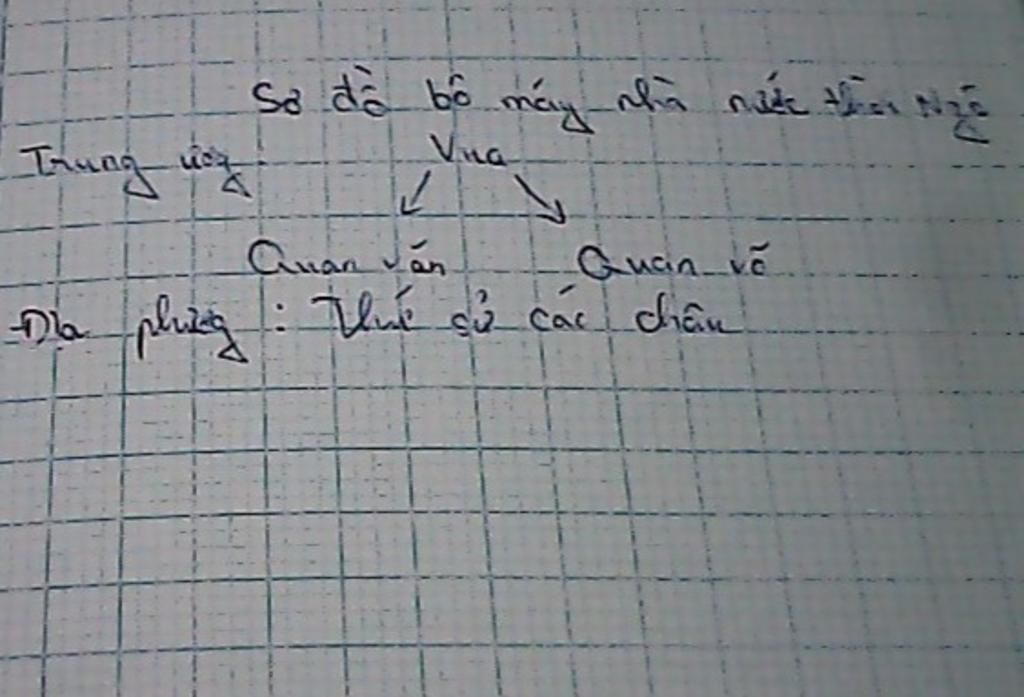 Sơ đồ bộ máy nhà nước thời Ngô
Trung ương: Vua
Quan văn Quan võ
Địa phương: Thứ sử các châu